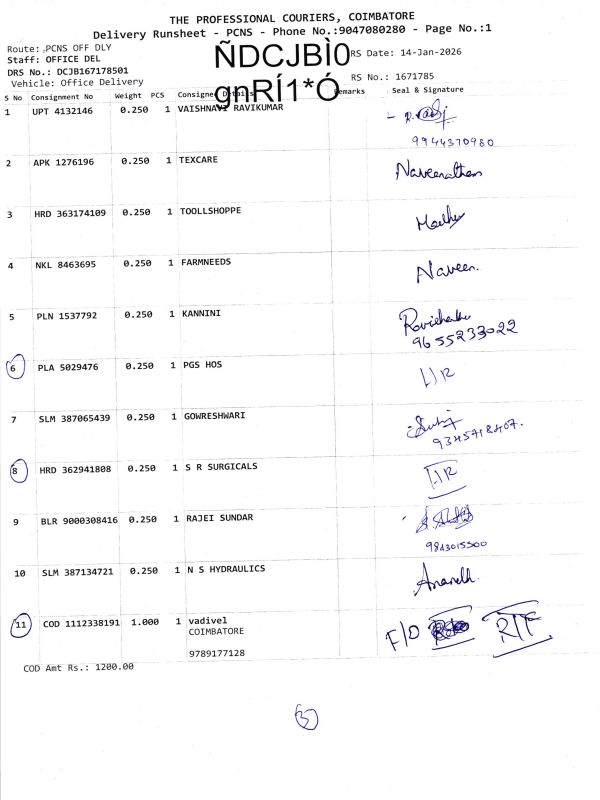 THE PROFESSIONAL COURIERS, COIMBATORE
Delivery Runsheet - PCNS - Phone No.:9047080280 - Page No.:1
Route: PCNS OFF DLY
Staff: OFFICE DEL
DRS No.: DCJB167178501
Vehicle: Office Delivery
ÑDCJBÌ0
gnRÍ1*Ó
RS Date: 14-Jan-2026
RS No.: 1671785
S No Consignment No Weight PCS Consignee Details Remarks Seal & Signature
1 UPT 4132146 0.250 1 VAISHNAVI RAVIKUMAR
9944370980
2 APK 1276196 0.250 1 TEXCARE Naveenathan
3 HRD 363174109 0.250 1 TOOLLSHOPPE
4 NKL 8463695 0.250 1 FARMNEEDS Naveen.
5 PLN 1537792 0.250 1 KANNINI
9655233022
6 PLA 5029476 0.250 1 PGS HOS
7 SLM 387065439 0.250 1 GOWRESHWARI
9345718407.
8 HRD 362941808 0.250 1 S R SURGICALS
9 BLR 9000308416 0.250 1 RAJEI SUNDAR
9843015500
10 SLM 387134721 0.250 1 N S HYDRAULICS Ananth
11 COD 1112338191 1.000 1 vadivel F/O
COIMBATORE
9789177128
COD Amt Rs.: 1200.00